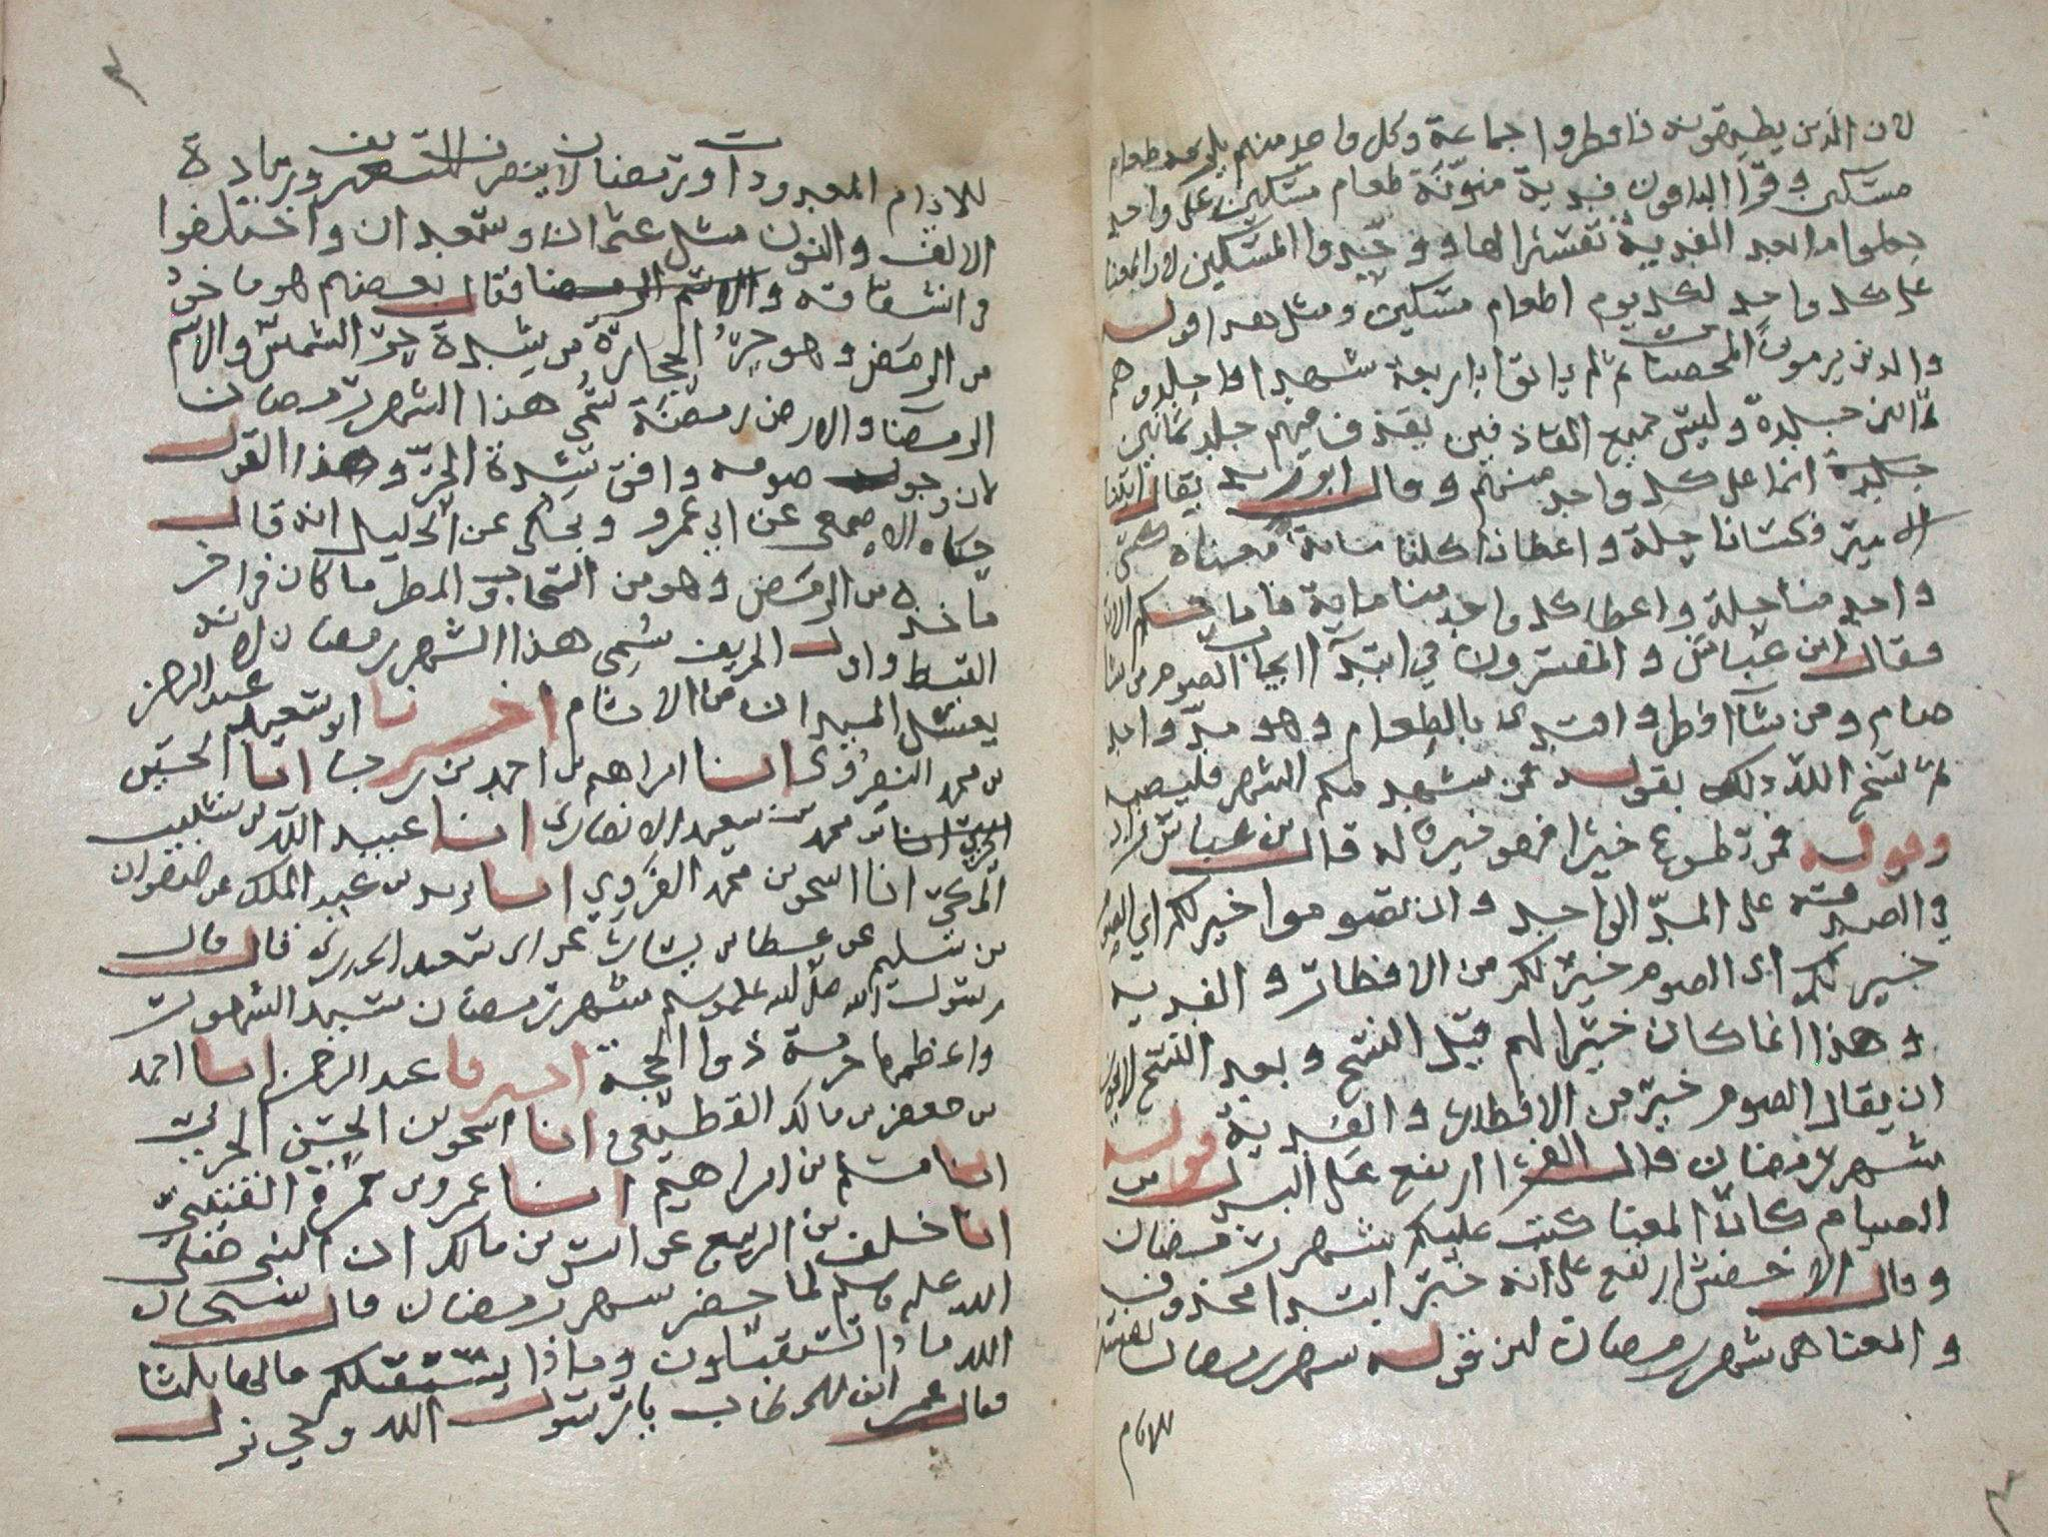 لان الذين يطيقونه فافطروا جماعة وكل واحد منهم يلزمه طعام
مسكين وقرا الباقون فدية منونة طعام مسكين على واحد
بعد الفدية تفسيرا لها ووحدوا المسكين لان المعنا
على كل واحد لكل يوم اطعام مسكين ومثل هذا قوله
والذين يرمون المحصنات ثم لم ياتوا باربعة شهدا فاجلدوهم
ثمانين جلدة وليس جميع القاذفين يفرق فيهم جلد ثمانين
جلدة انما على كل واحد منهم وقال ابو زيد يقال اتينا
الامير فكسانا حلة واعطانا كلنا ماية معناه كسى
واحد منا حلة واعطا كل واحد منا ماية فاما حكم الاية
فقال ابن عباس والمفسرون في ابتدآ ايجاب الصوم من شا
صام ومن شآ افطر وافتدى بالطعام وهو مد واحد
ثم نسخ الله ذلك بقوله فمن شهد منكم الشهر فليصمه
وقوله فمن تطوع خيرا فهو خير له قال بن عباس زاد
في الصدقة على المد الواحد وان تصوموا خير لكم اي الصوم
خير لكم اى الصوم خير لكم من الافطار والفدية
وهذا انما كان خيرا لهم قبل النسخ وبعد النسخ لا يجوز
ان يقال الصوم خير من الافطار والفدية قوله
شهر رمضان قال الفرا ارتفع على البدل من
الصيام كانّ المعنا كتب عليكم شهر رمضان
وقال الاخفش ارتفع على انه خبر ابتدا محذوف
والمعنا هي شهر رمضان لان قوله شهر رمضان تفسير
للايام
للايام المعدودات ورمضان لا ينصرف للتعريف وزيادة
الالف والنون مثل عثمان وسعدان واختلفوا
في اشتقاقه فقال بعضهم هو ماخوذ
من الرمض وهو حرّ الحجارة من شدة حر الشمس والاسم
الرمضا والارض رمضة سُمّي هذا الشهر رمضان
لان وجوب صومه وافق شدة الحرّ وهذا القول
حكاه الاصمعي عن ابي عمرو ويحكى عن الخليل انه قال
ماخذه من الرمض وهو من السحاب والمطر ما كان في اخر
القيظ واول الخريف سُمى هذا الشهر رمضان لانه
يغسل الابدان من الاثام اخبرنا ابو سعيد عبد الرحمن
بن محمد انا ابراهيم بن احمد بن رجا انا الحسين
بن محمد بن سعيد الانصارى انا عبيد الله بن شبيب
المكي انا اسحق بن محمد الفروي انا يزيد بن عبد الملك عن صفوان
بن سليم عن عطا بن يسار عن ابى سعيد الخدرى قال قال
رسول الله صلى الله عليه وسلم شهر رمضان سيد الشهور
واعظمها حرمة ذوا الحجة اخبرنا عبد الرحمن انا احمد
بن جعفر بن مالك القطيعي انا اسحق بن الحسن الحربي
انا مسلم بن ابراهيم انا عمرو بن حمزة القيسي
انا خلف بن الربيع عن انس بن مالك ان النبى صلى
الله عليه وسلم لما حضر شهر رمضان قال سبحان
الله ماذا تستقبلون وماذا يستقبلكم قالها ثلثا
فقال عمر ابن الخطاب يا رسول الله وحي نزل